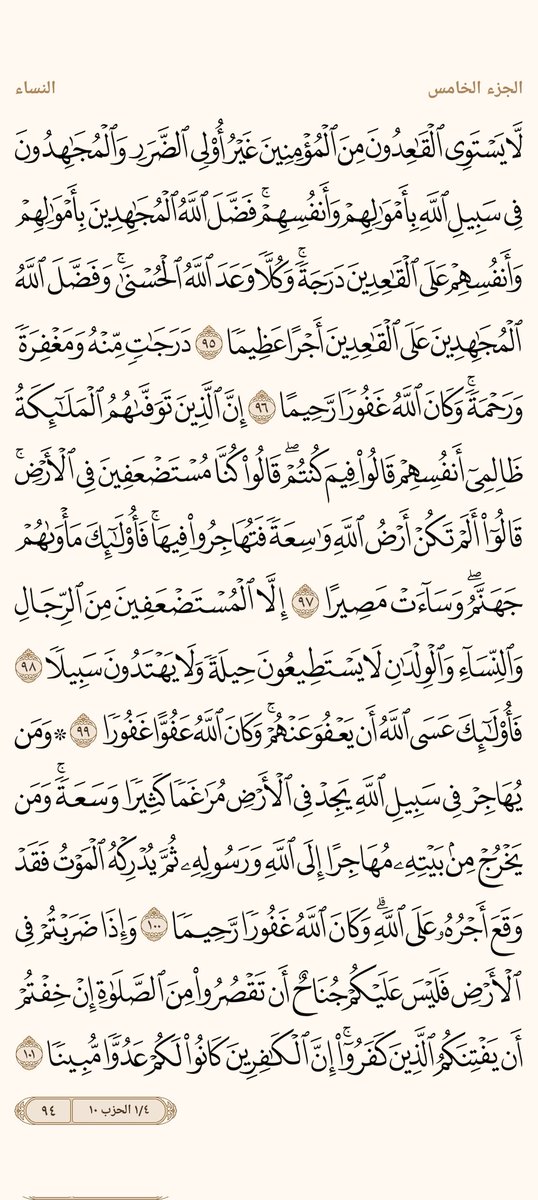 الجزء الخامس
النساء
لَّا يَسْتَوِى ٱلْقَـٰعِدُونَ مِنَ ٱلْمُؤْمِنِينَ غَيْرُ أُو۟لِى ٱلضَّرَرِ وَٱلْمُجَـٰهِدُونَ
فِى سَبِيلِ ٱللَّهِ بِأَمْوَٰلِهِمْ وَأَنفُسِهِمْ ۚ فَضَّلَ ٱللَّهُ ٱلْمُجَـٰهِدِينَ بِأَمْوَٰلِهِمْ
وَأَنفُسِهِمْ عَلَى ٱلْقَـٰعِدِينَ دَرَجَةً ۚ وَكُلًّا وَعَدَ ٱللَّهُ ٱلْحُسْنَىٰ ۚ وَفَضَّلَ ٱللَّهُ
ٱلْمُجَـٰهِدِينَ عَلَى ٱلْقَـٰعِدِينَ أَجْرًا عَظِيمًا ٩٥ دَرَجَـٰتٍ مِّنْهُ وَمَغْفِرَةً
وَرَحْمَةً ۚ وَكَانَ ٱللَّهُ غَفُورًا رَّحِيمًا ٩٦ إِنَّ ٱلَّذِينَ تَوَفَّىٰهُمُ ٱلْمَلَـٰٓئِكَةُ
ظَالِمِىٓ أَنفُسِهِمْ قَالُوا۟ فِيمَ كُنتُمْ ۖ قَالُوا۟ كُنَّا مُسْتَضْعَفِينَ فِى ٱلْأَرْضِ ۚ
قَالُوٓا۟ أَلَمْ تَكُنْ أَرْضُ ٱللَّهِ وَٰسِعَةً فَتُهَاجِرُوا۟ فِيهَا ۚ فَأُو۟لَـٰٓئِكَ مَأْوَىٰهُمْ
جَهَنَّمُ ۖ وَسَآءَتْ مَصِيرًا ٩٧ إِلَّا ٱلْمُسْتَضْعَفِينَ مِنَ ٱلرِّجَالِ
وَٱلنِّسَآءِ وَٱلْوِلْدَٰنِ لَا يَسْتَطِيعُونَ حِيلَةً وَلَا يَهْتَدُونَ سَبِيلًا ٩٨
فَأُو۟لَـٰٓئِكَ عَسَى ٱللَّهُ أَن يَعْفُوَ عَنْهُمْ ۚ وَكَانَ ٱللَّهُ عَفُوًّا غَفُورًا ٩٩ * وَمَن
يُهَاجِرْ فِى سَبِيلِ ٱللَّهِ يَجِدْ فِى ٱلْأَرْضِ مُرَٰغَمًا كَثِيرًا وَسَعَةً ۚ وَمَن
يَخْرُجْ مِنۢ بَيْتِهِۦ مُهَاجِرًا إِلَى ٱللَّهِ وَرَسُولِهِۦ ثُمَّ يُدْرِكْهُ ٱلْمَوْتُ فَقَدْ
وَقَعَ أَجْرُهُۥ عَلَى ٱللَّهِ ۗ وَكَانَ ٱللَّهُ غَفُورًا رَّحِيمًا ١٠٠ وَإِذَا ضَرَبْتُمْ فِى
ٱلْأَرْضِ فَلَيْسَ عَلَيْكُمْ جُنَاحٌ أَن تَقْصُرُوا۟ مِنَ ٱلصَّلَوٰةِ إِنْ خِفْتُمْ
أَن يَفْتِنَكُمُ ٱلَّذِينَ كَفَرُوٓا۟ ۚ إِنَّ ٱلْكَـٰفِرِينَ كَانُوا۟ لَكُمْ عَدُوًّا مُّبِينًا ١٠١
١/٤ الحزب ١٠
٩٤